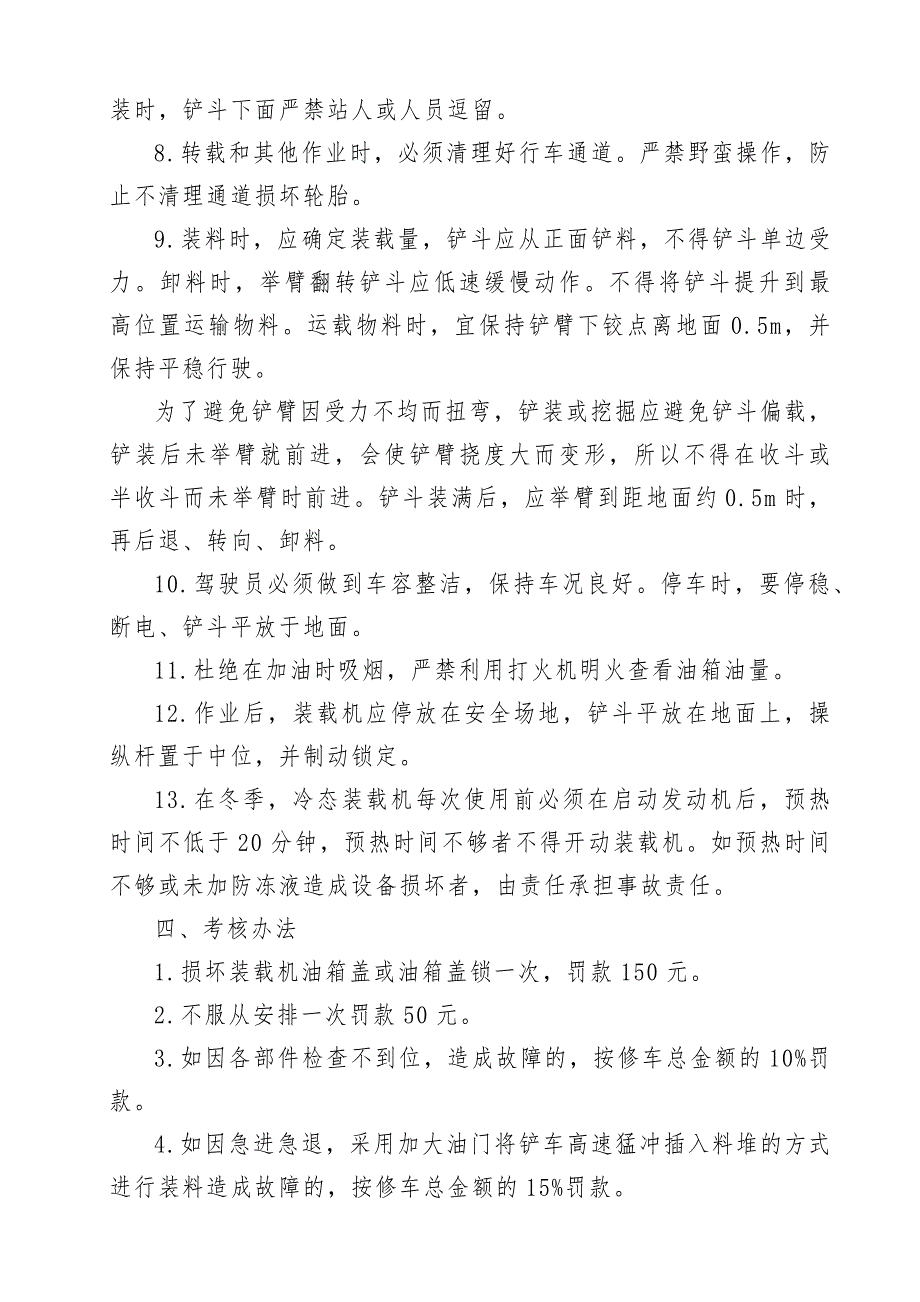 装时，铲斗下面严禁站人或人员逗留。
8.转载和其他作业时，必须清理好行车通道。严禁野蛮操作，防
止不清理通道损坏轮胎。
9.装料时，应确定装载量，铲斗应从正面铲料，不得铲斗单边受
力。卸料时，举臂翻转铲斗应低速缓慢动作。不得将铲斗提升到最
高位置运输物料。运载物料时，宜保持铲臂下铰点离地面 0.5m，并
保持平稳行驶。
为了避免铲臂因受力不均而扭弯，铲装或挖掘应避免铲斗偏载，
铲装后未举臂就前进，会使铲臂挠度大而变形，所以不得在收斗或
半收斗而未举臂时前进。铲斗装满后，应举臂到距地面约 0.5m 时，
再后退、转向、卸料。
10.驾驶员必须做到车容整洁，保持车况良好。停车时，要停稳、
断电、铲斗平放于地面。
11.杜绝在加油时吸烟，严禁利用打火机明火查看油箱油量。
12.作业后，装载机应停放在安全场地，铲斗平放在地面上，操
纵杆置于中位，并制动锁定。
13.在冬季，冷态装载机每次使用前必须在启动发动机后，预热
时间不低于 20 分钟，预热时间不够者不得开动装载机。如预热时间
不够或未加防冻液造成设备损坏者，由责任承担事故责任。
四、考核办法
1.损坏装载机油箱盖或油箱盖锁一次，罚款 150 元。
2.不服从安排一次罚款 50 元。
3.如因各部件检查不到位，造成故障的，按修车总金额的 10%罚
款。
4.如因急进急退，采用加大油门将铲车高速猛冲插入料堆的方式
进行装料造成故障的，按修车总金额的 15%罚款。